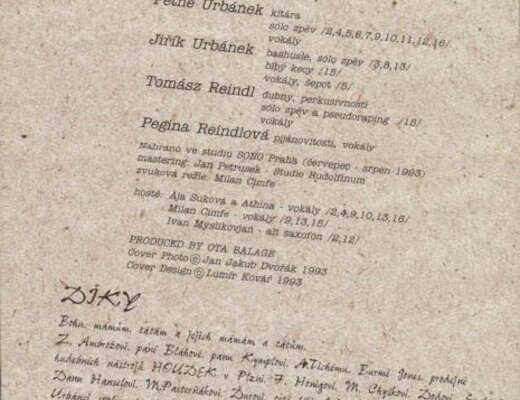 Petne Urbánek kitára
sólo zpěv /2,4,5,6,7,9,10,11,12,16/
vokály
Jiřík Urbánek bashusle, sólo zpěv /3,8,13/
blbý kecy /15/
vokály, šepot /5/
Tomász Reindl dubny, perkusivnosti
sólo zpěv a pseudoraping /15/
vokály
Pegina Reindlová pijánovitosti, vokály
Nahráno ve studiu SONO Praha (červepec - srpen 1993)
mastering: Jan Petrusek - Studio Rudolfinum
zvuková režie: Milan Cimfe
hosté: Ája Suková a Athina - vokály /2,4,9,10,13,16/
Milan Cimfe - vokály /9,13,15/
Ivan Myslikovjan - alt saxofón /2,12/
PRODUCED BY OTA BALAGE
Cover Photo © Jan Jakub Dvořák 1993
Cover Design © Lumír Kovář 1993
DÍKY
Bohu, mámám, tátám a jejich mámám a tátům.
Z. Ambrožovi, paní Bláhové, panu Kymplovi, A.Tichému, Burmě Jones, prodejně
hudebních nástrojů HOUDEK v Plzni, F. Honigovi, M. Chyškovi, Dodovi,
Danu Hanselovi, M.Pasterňákovi,
Urbánci